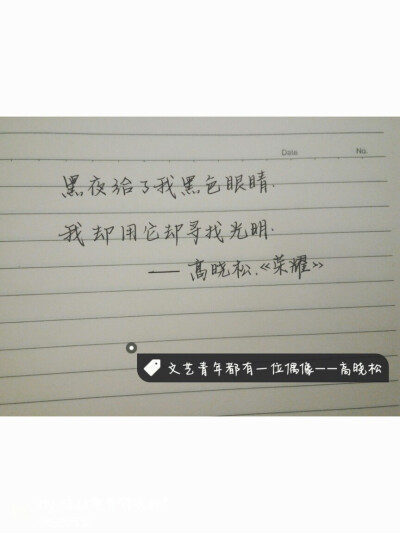 Date No.
黑夜给了我黑色眼睛.
我却用它却寻找光明.
——高晓松.《荣耀》
文艺青年都有一位偶像——高晓松